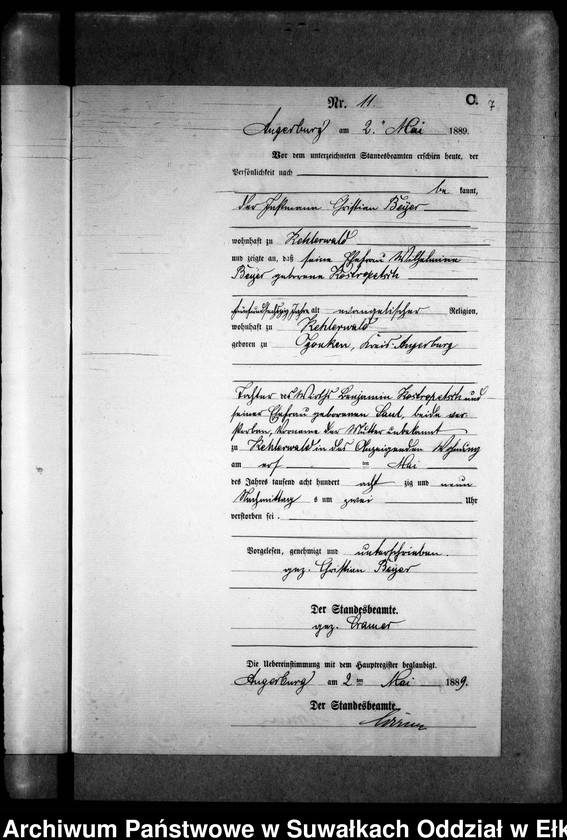 Nr. 11 C. 7
Angerburg am 2. Mai 1889.
Vor dem unterzeichneten Standesbeamten erschien heute, der
Persönlichkeit nach
be kannt,
der Instmann Christian Beyer
wohnhaft zu Kehlerwald
und zeigte an, daß seine Ehefrau Wilhelmine
Beyer geborene
fünfundsechzig Jahre alt evangelischer Religion,
wohnhaft zu Kehlerwald
geboren zu Kreis Angerburg
Tochter des Wirths Benjamin und
seiner Ehefrau geborenen beide ver
storben, Vorname der Mutter unbekannt
zu Kehlerwald in des Anzeigenden Wohnung
am ersten Mai
des Jahres tausend acht hundert acht zig und neun
Nachmittag s um zwei Uhr
verstorben sei.
Vorgelesen, genehmigt und unterschrieben.
gez. Christian Beyer
Der Standesbeamte.
gez. Cramer
Die Uebereinstimmung mit dem Hauptregister beglaubigt.
Angerburg am 2 ten Mai 1889.
Der Standesbeamte.
Archiwum Państwowe w Suwałkach Oddział w Ełk